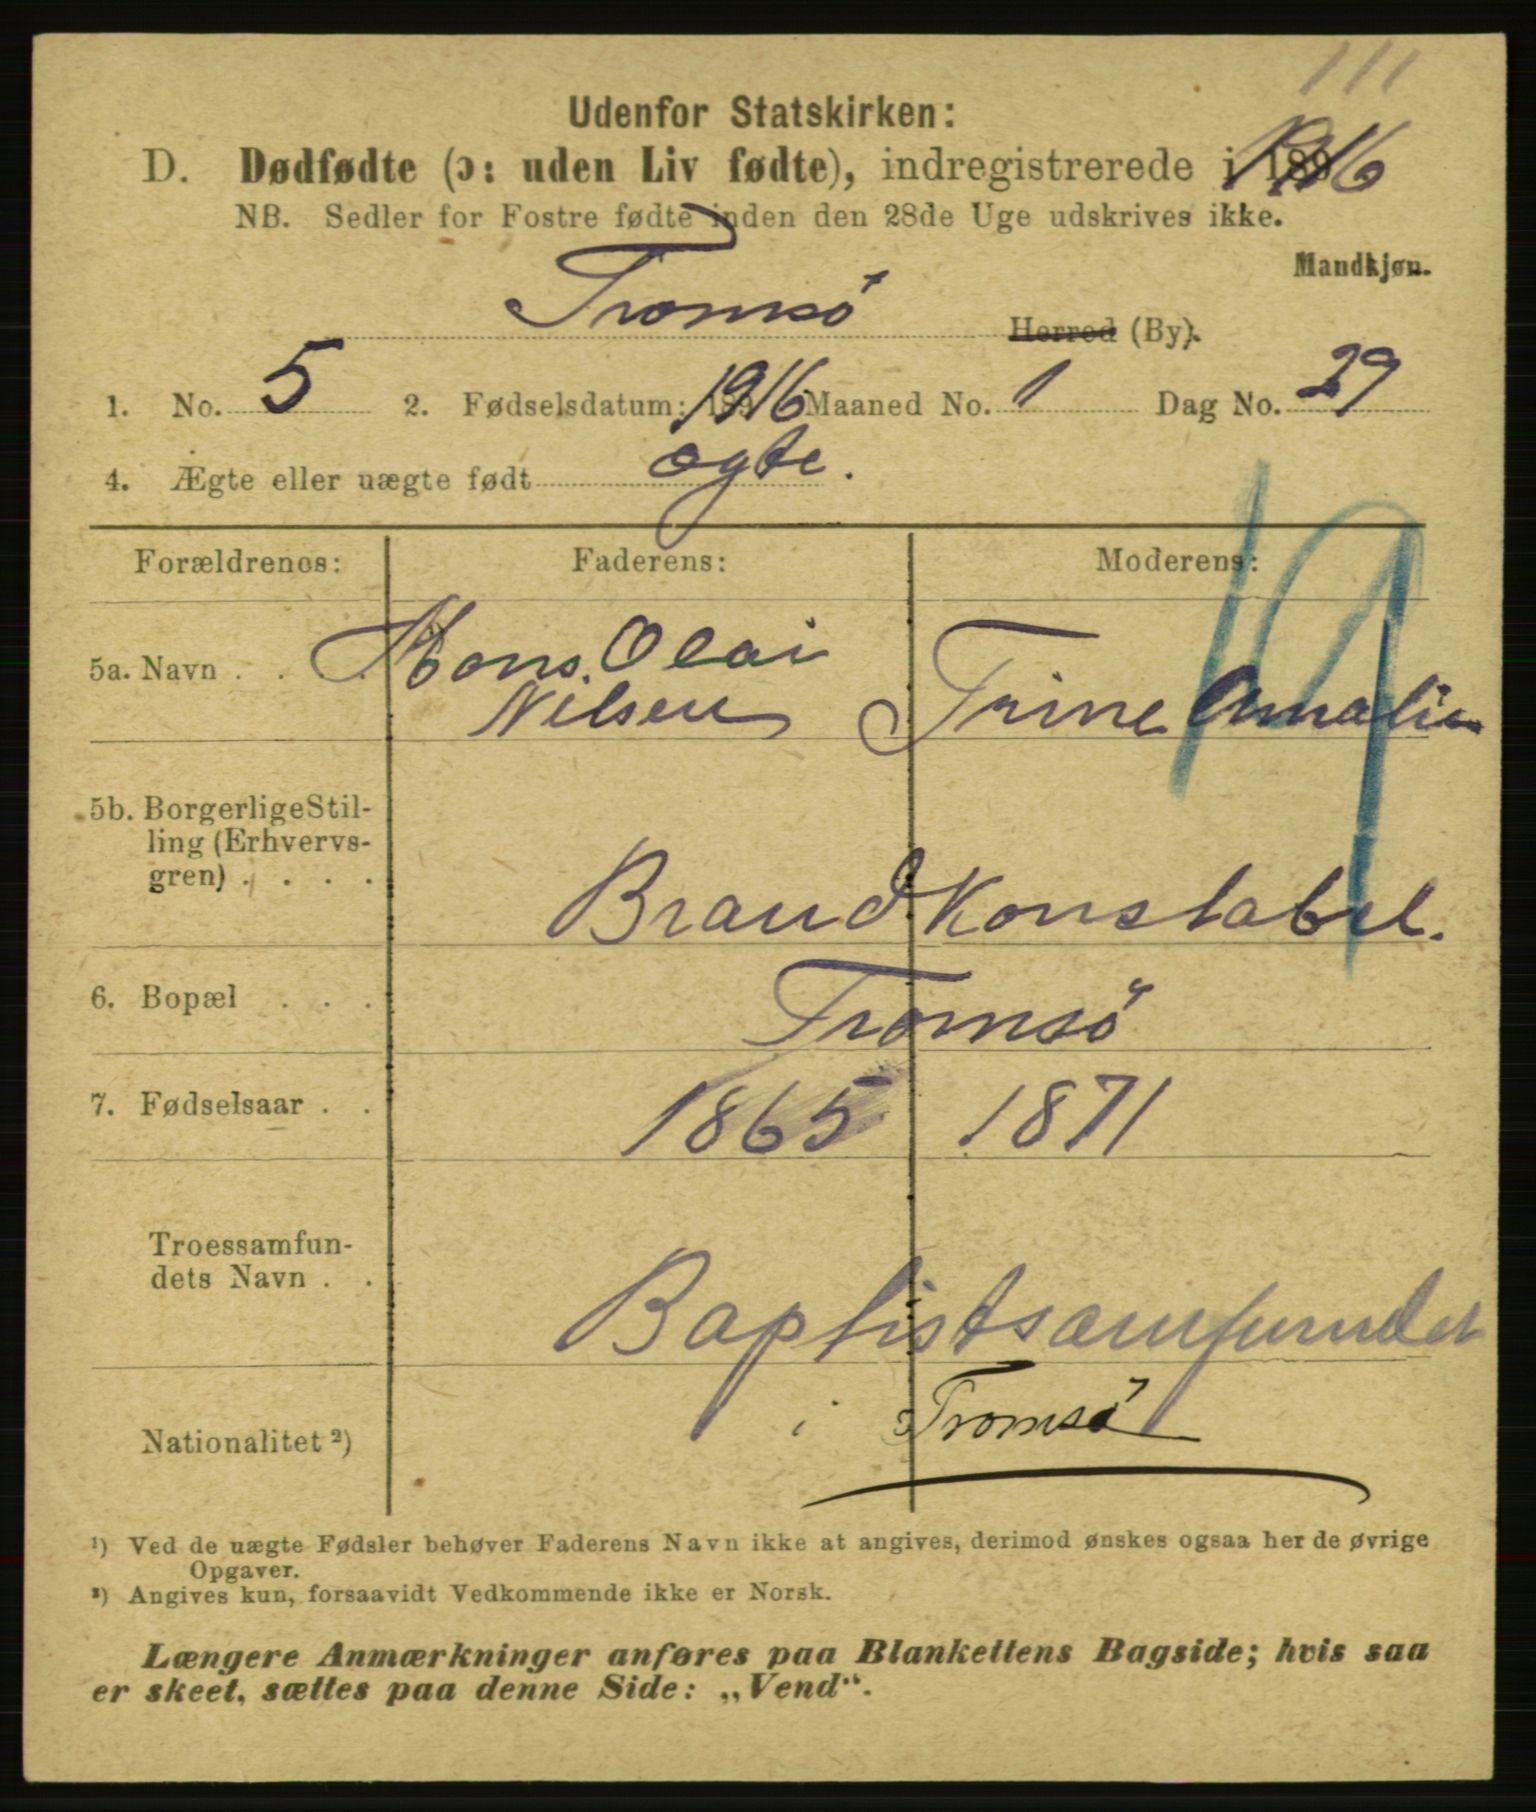 111
Udenfor Statskirken:
D. Dødfødte (ɔ: uden Liv fødte), indregistrerede i 1916
NB. Sedler for Fostre fødte inden den 28de Uge udskrives ikke.
Mandkjøn.
Tromsö Herred (By).
1. No. 5 2. Fødselsdatum: 1916 Maaned No. 1 Dag No. 29
4. Ægte eller uægte født ægte.
Forældrenes: Faderens: Moderens:
19
5a. Navn . . . Mons. Olai
Nilsen Trine Amalie
5b. Borgerlige Stil-
ling (Erhvervs-
gren) . . . . Brandkonstabel.
6. Bopæl . . . Tromsö
7. Fødselsaar . . 1865 1871
Troessamfun-
dets Navn . . Baptistsamfundet
i Tromsö
Nationalitet ²)
¹) Ved de uægte Fødsler behøver Faderens Navn ikke at angives, derimod ønskes ogsaa her de øvrige
Opgaver.
²) Angives kun, forsaavidt Vedkommende ikke er Norsk.
Længere Anmærkninger anføres paa Blankettens Bagside; hvis saa
er skeet, sættes paa denne Side: „Vend“.